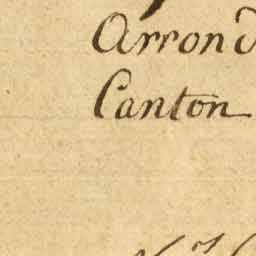 Arrond
Canton